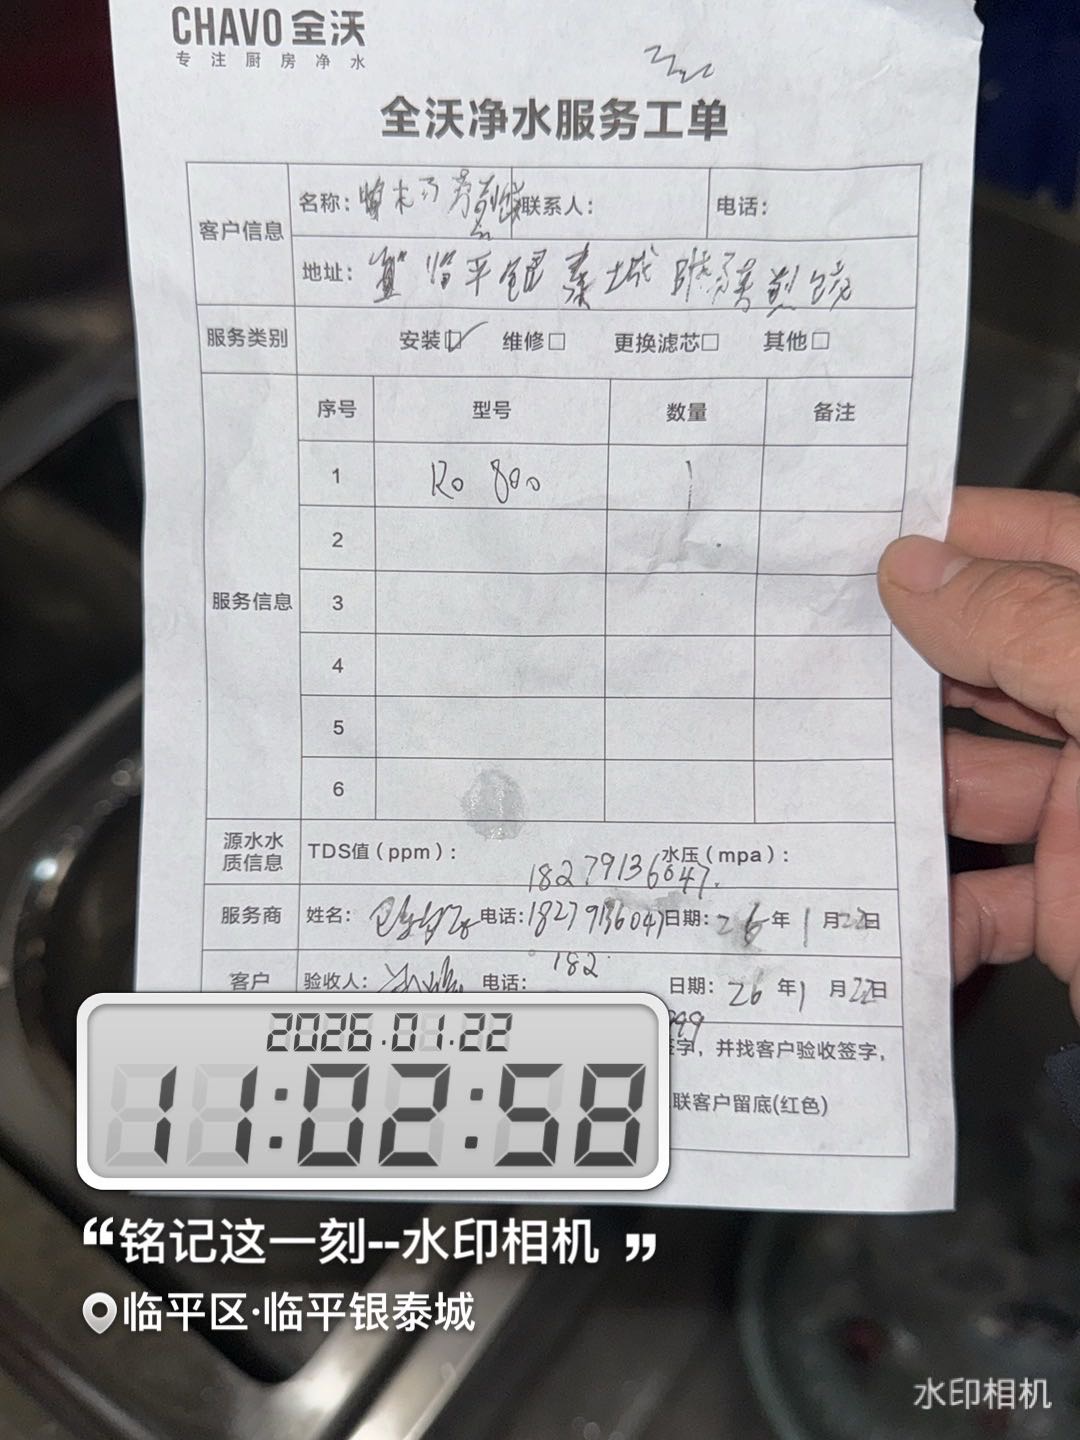 CHAVO 全沃
专注厨房净水
全沃净水服务工单
客户信息
名称： 联系人： 电话：
地址： 临平银泰城
服务类别 安装☑ 维修□ 更换滤芯□ 其他□
服务信息
序号 型号 数量 备注
1 Ro 800 1
2
3
4
5
6
源水水质信息 TDS值（ppm）： 水压（mpa）：
18279136047.
服务商 姓名： 电话：18279136047 日期：26年1月22日
182
客户 验收人： 电话： 日期：26年1月22日
签字，并找客户验收签字，
联客户留底(红色)
2026.01.22
11:02:58
“铭记这一刻--水印相机”
临平区·临平银泰城
水印相机